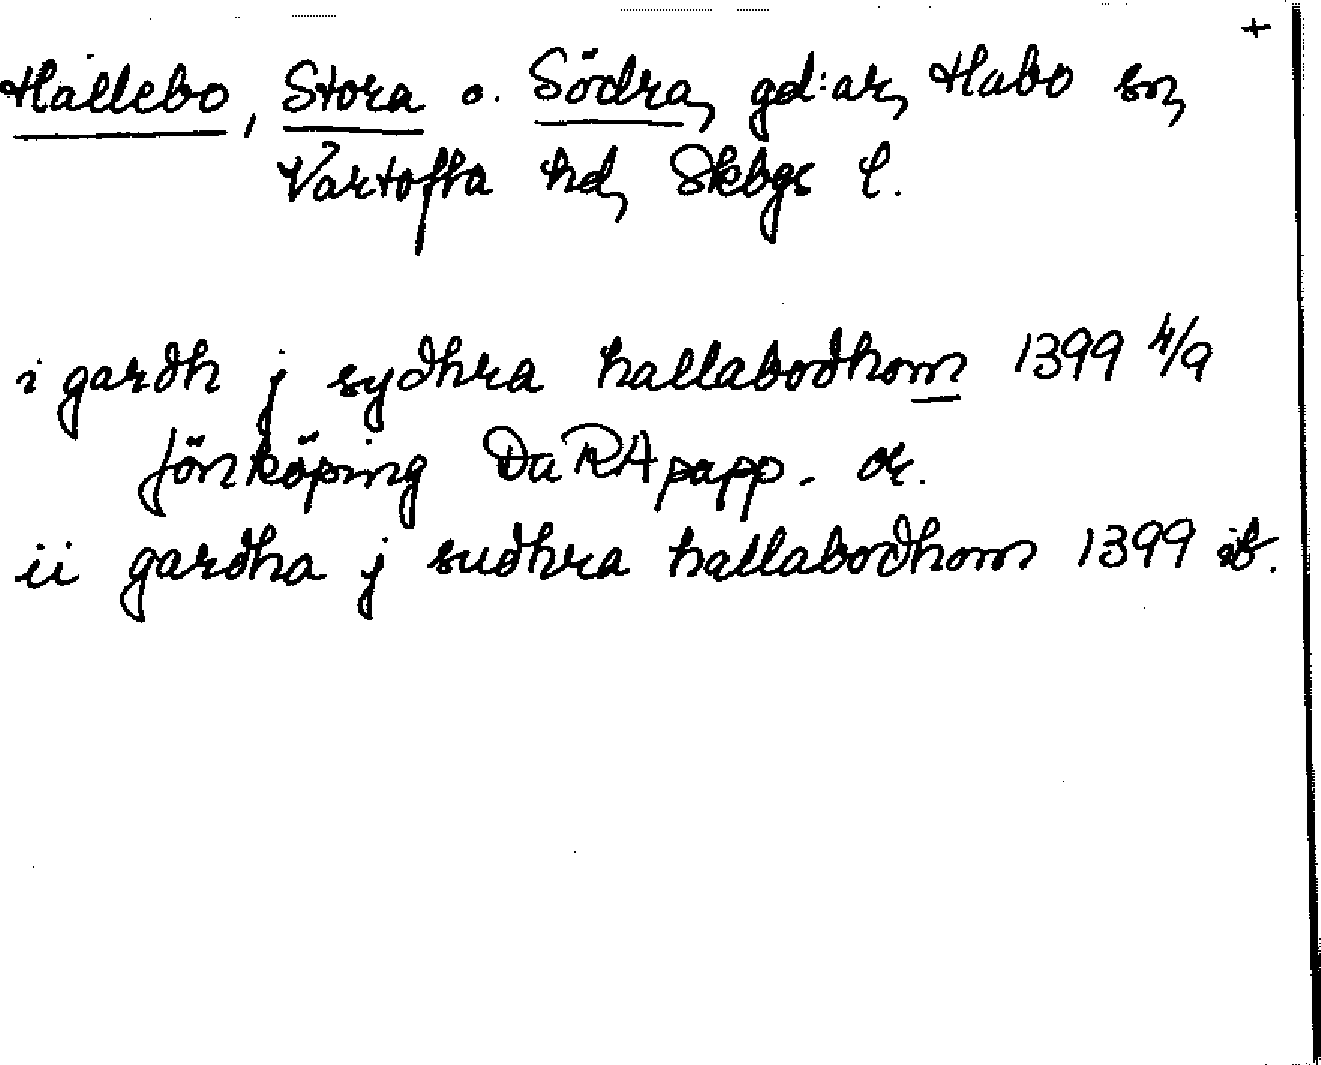 +
Hällebo, Stora o. Södra, gd:ar, Habo sn,
Vartofta hd, Skbgs l.
i gardh j sydhra hallabodhom 1399 4/9
Jönköping DaRApapp. or.
ii gardha j sudhra hallabodhom 1399 ib.